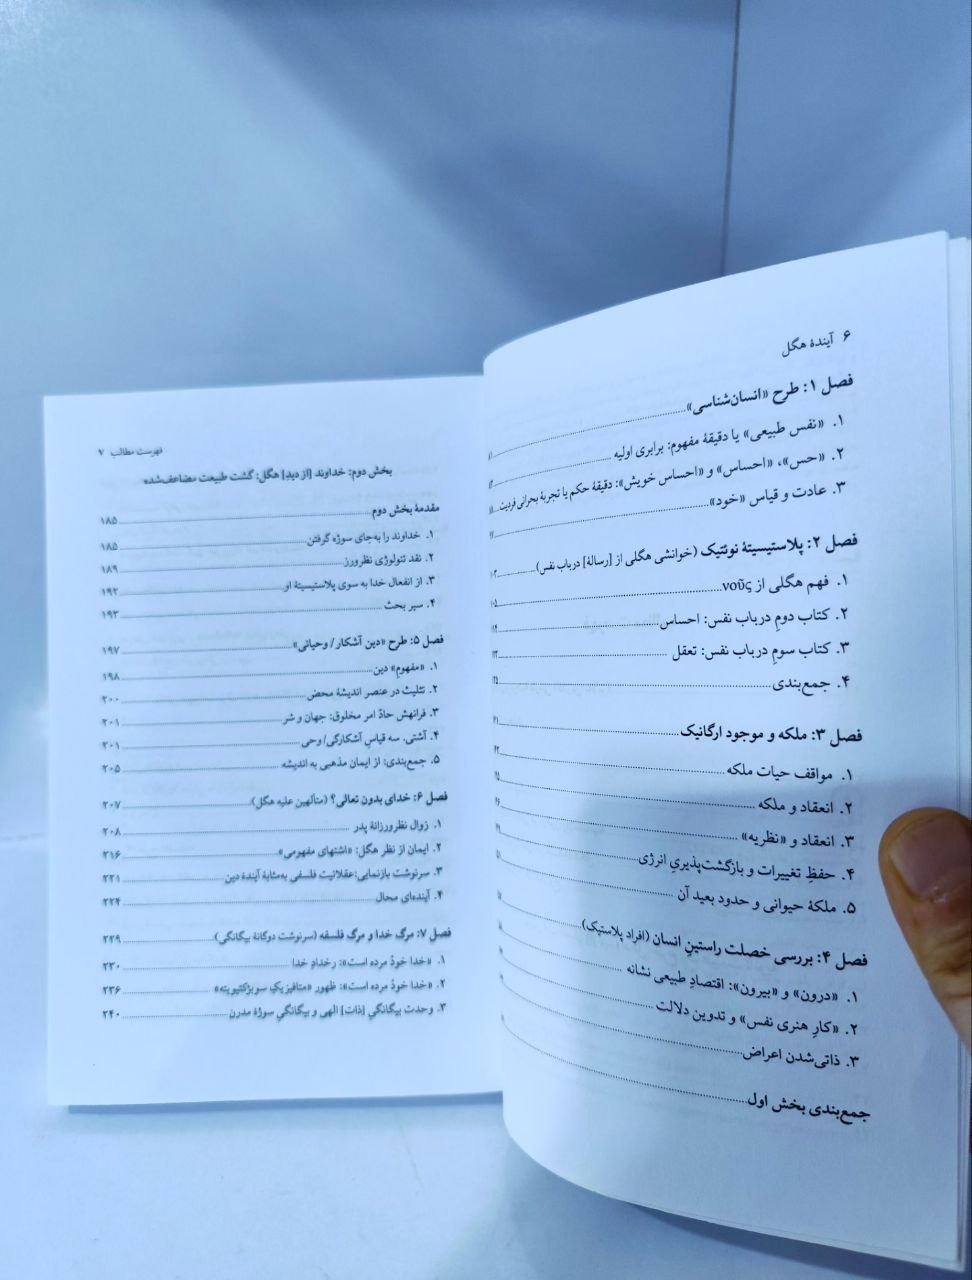 ۶ آیندۀ هگل
فصل ۱: طرح «انسان‌شناسی»
۱. «نفس طبیعی» یا دقیقۀ مفهوم: برابری اولیه
۲. «حس»، «احساس» و «احساس خویش»: دقیقۀ حکم یا تجربۀ بحرانی فردیت
۳. عادت و قیاس «خود»
فصل ۲: پلاستیسیتۀ نوئتیک (خوانشی هگلی از [رسالۀ] درباب نفس)
۱. فهم هگلی از νοῦς
۲. کتاب دومِ درباب نفس: احساس
۳. کتاب سومِ درباب نفس: تعقل
۴. جمع‌بندی
فصل ۳: ملکه و موجود ارگانیک
۱. مواقف حیات ملکه
۲. انعقاد و ملکه
۳. انعقاد و «نظریه»
۴. حفظِ تغییرات و بازگشت‌پذیریِ انرژی
۵. ملکۀ حیوانی و حدود بعید آن
فصل ۴: بررسی خصلت راستینِ انسان (افراد پلاستیک)
۱. «درون» و «بیرون»: اقتصادِ طبیعی نشانه
۲. «کارِ هنری نفس» و تدوین دلالت
۳. ذاتی‌شدن اعراض
جمع‌بندی بخش اول
فهرست مطالب ۷
بخش دوم: خداوند [از دیدِ] هگل: گشت طبیعت مضاعف‌شده
مقدمۀ بخش دوم ۱۸۵
۱. خداوند را به‌جای سوژه گرفتن ۱۸۵
۲. نقد تئولوژی نظرورز ۱۸۹
۳. از انفعال خدا به سوی پلاستیسیتۀ او ۱۹۲
۴. سیر بحث ۱۹۳
فصل ۵: طرح «دین آشکار/ وحیانی» ۱۹۷
۱. «مفهوم» دین ۱۹۸
۲. تثلیث در عنصر اندیشۀ محض ۲۰۰
۳. فرانهش حادّ امر مخلوق: جهان و شر ۲۰۱
۴. آشتی. سه قیاسِ آشکارگی/ وحی ۲۰۱
۵. جمع‌بندی: از ایمان مذهبی به اندیشه ۲۰۵
فصل ۶: خدای بدون تعالی؟ (متألهین علیه هگل) ۲۰۷
۱. زوال نظرورزانۀ پدر ۲۰۸
۲. ایمان از نظر هگل: «اشتهای مفهومی» ۲۱۶
۳. سرنوشت بازنمایی: عقلانیت فلسفی به‌مثابۀ آیندۀ دین ۲۲۱
۴. آینده‌ای محال ۲۲۴
فصل ۷: مرگ خدا و مرگ فلسفه (سرنوشت دوگانۀ بیگانگی) ۲۲۹
۱. «خدا خودْ مرده است»: رخدادِ خدا ۲۳۰
۲. «خدا خودْ مرده است»: ظهور «متافیزیکِ سوبژکتیویته» ۲۳۶
۳. وحدت بیگانگیِ [ذات] الهی و بیگانگیِ سوژۀ مدرن ۲۴۰